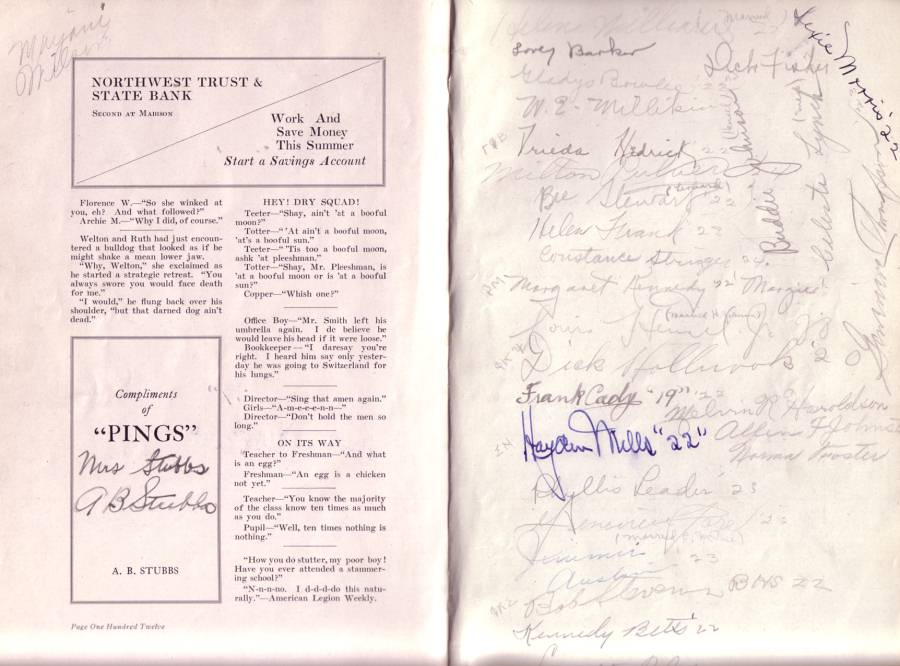 Marjorie
Milsn
NORTHWEST TRUST &
STATE BANK
SECOND AT MADISON
Work And
Save Money
This Summer
Start a Savings Account
Florence W.—"So she winked at
you, eh? And what followed?"
Archie M.—"Why I did, of course."
Welton and Ruth had just encoun-
tered a bulldog that looked as if he
might shake a mean lower jaw.
"Why, Welton," she exclaimed as
he started a strategic retreat. "You
always swore you would face death
for me."
"I would," he flung back over his
shoulder, "but that darned dog ain't
dead."
Compliments
of
"PINGS"
Mrs Stubbs
A B Stubbs
A. B. STUBBS
Page One Hundred Twelve
HEY! DRY SQUAD!
Teeter—"Shay, ain't 'at a booful
moon?"
Totter—"'At ain't a booful moon,
'at's a booful sun."
Teeter—"'Tis too a booful moon,
ashk 'at pleeshman."
Totter—"Shay, Mr. Pleeshman, is
'at a booful moon or is 'at a booful
sun?"
Copper—"Whish one?"
Office Boy—"Mr. Smith left his
umbrella again. I de believe he
would leave his head if it were loose."
Bookkeeper—"I daresay you're
right. I heard him say only yester-
day he was going to Switzerland for
his lungs."
Director—"Sing that amen again."
Girls—"A-m-e-e-e-n-n—"
Director—"Don't hold the men so
long."
ON ITS WAY
Teacher to Freshman—"And what
is an egg?"
Freshman—"An egg is a chicken
not yet."
Teacher—"You know the majority
of the class know ten times as much
as you do."
Pupil—"Well, ten times nothing is
nothing."
"How do you stutter, my poor boy!
Have you ever attended a stammer-
ing school?"
"N-n-n-no. I d-d-d-do this natu-
rally."—American Legion Weekly.
(married)
Lovey Barker
Dick Fisher
Lexie Morris '22
Gladys
W. E. Millikin
Frieda Hedrick '22
Milton
Bee Stewart '22
Helen Frank 22
Constance
Margaret Kennedy '22 Margie
Louis
Dick
Frank Cady "19" '22
Melvin P. Haroldson
Hayden Mills "22"
Allen F Johns
Norma Wooster
Phyllis Leader 23
Genevieve '22
'22
Austin
Bob Stevens BHS 22
Kennedy Betts '22